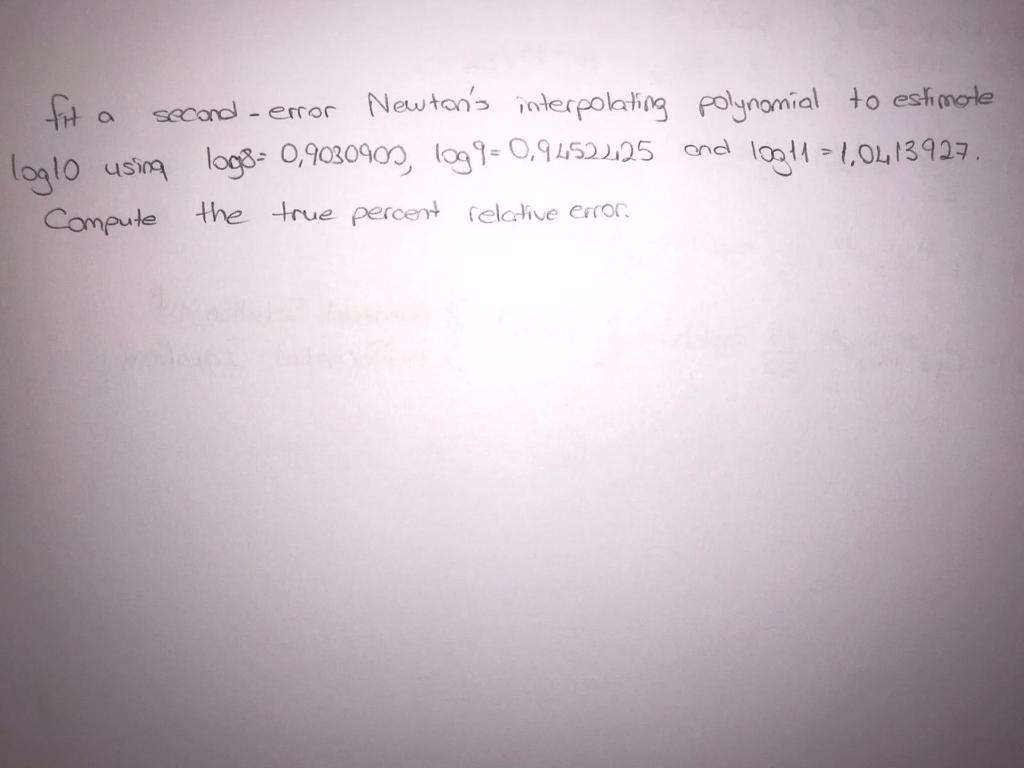 fit a second-error Newton's interpolating polynomial to estimate
log10 using log8= 0,9030900, log9= 0,9452425 and log11=1,0413927.
Compute the true percent relative error.